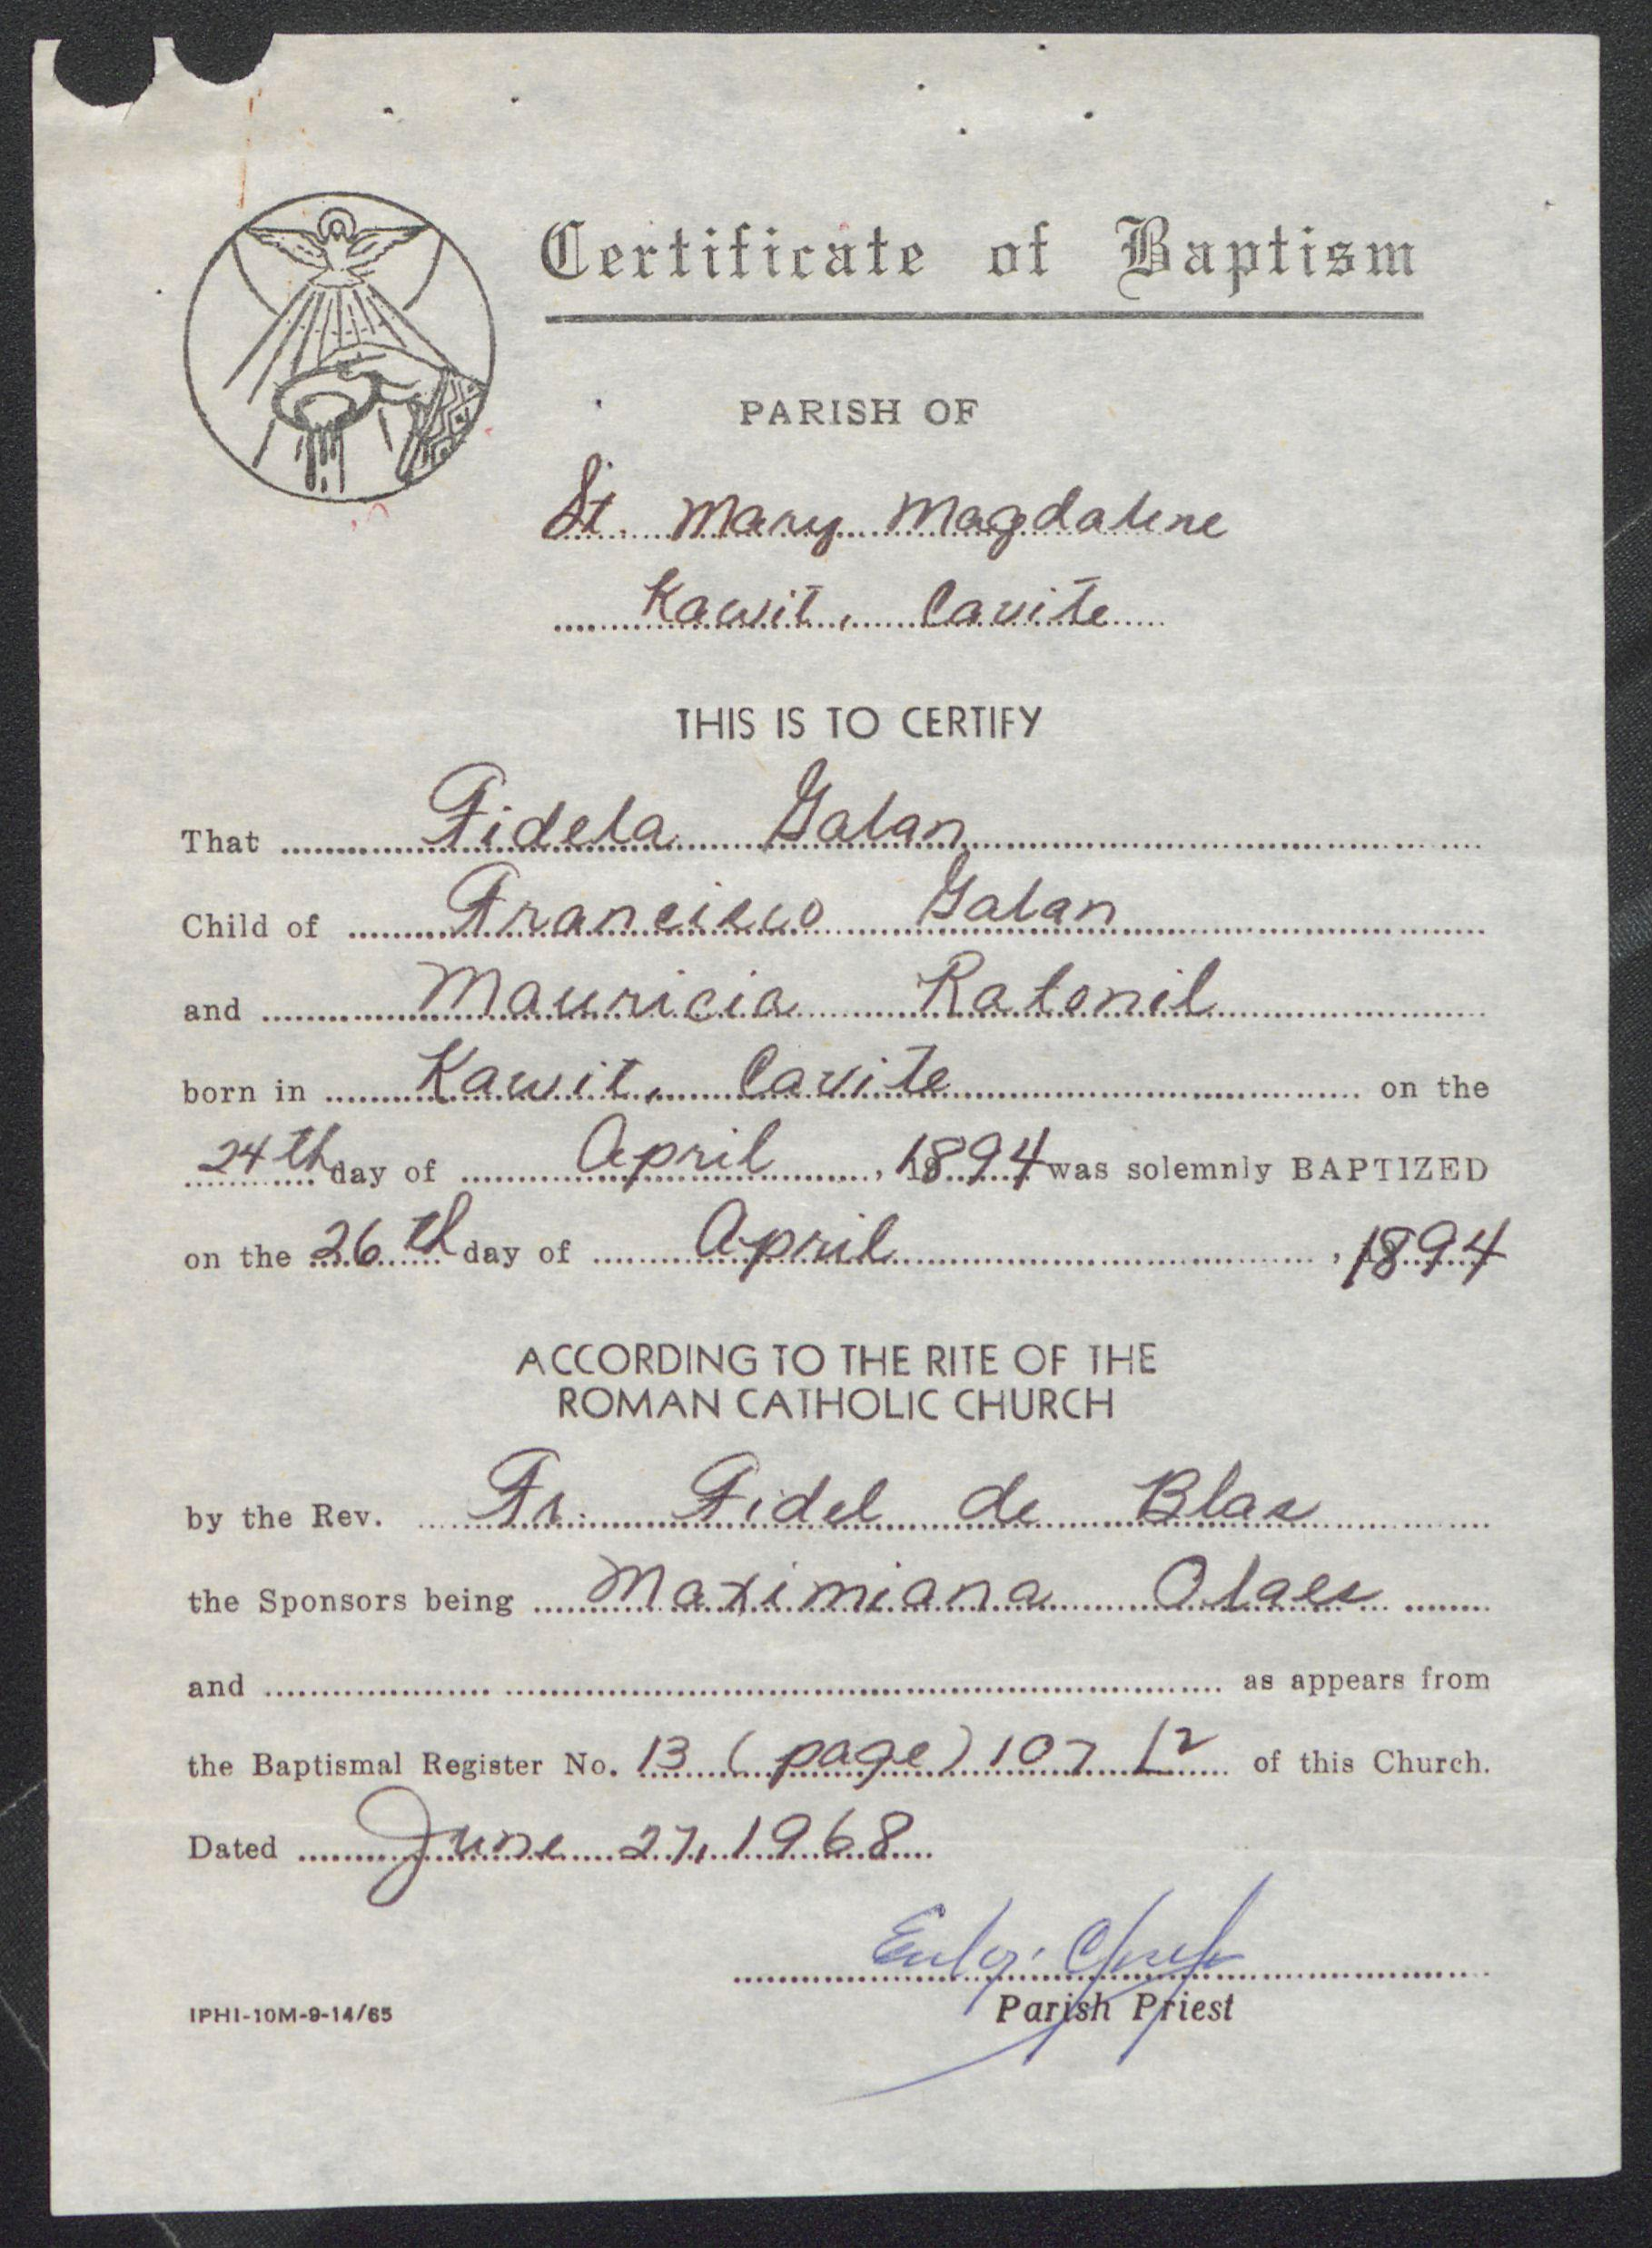 Certificate of Baptism
PARISH OF
St. Mary Magdalene
Kawit, Cavite
THIS IS TO CERTIFY
That Fidela Galan
Child of Francisco Galan
and Mauricia Ratonil
born in Kawit, Cavite on the
24th day of April, 1894 was solemnly BAPTIZED
on the 26th day of April, 1894
ACCORDING TO THE RITE OF THE
ROMAN CATHOLIC CHURCH
by the Rev. Fr. Fidel de Blas
the Sponsors being Maximiana Olaes
and as appears from
the Baptismal Register No. 13 (page) 107 of this Church.
Dated June 27, 1968
Parish Priest
IPHI-10M-9-14/65